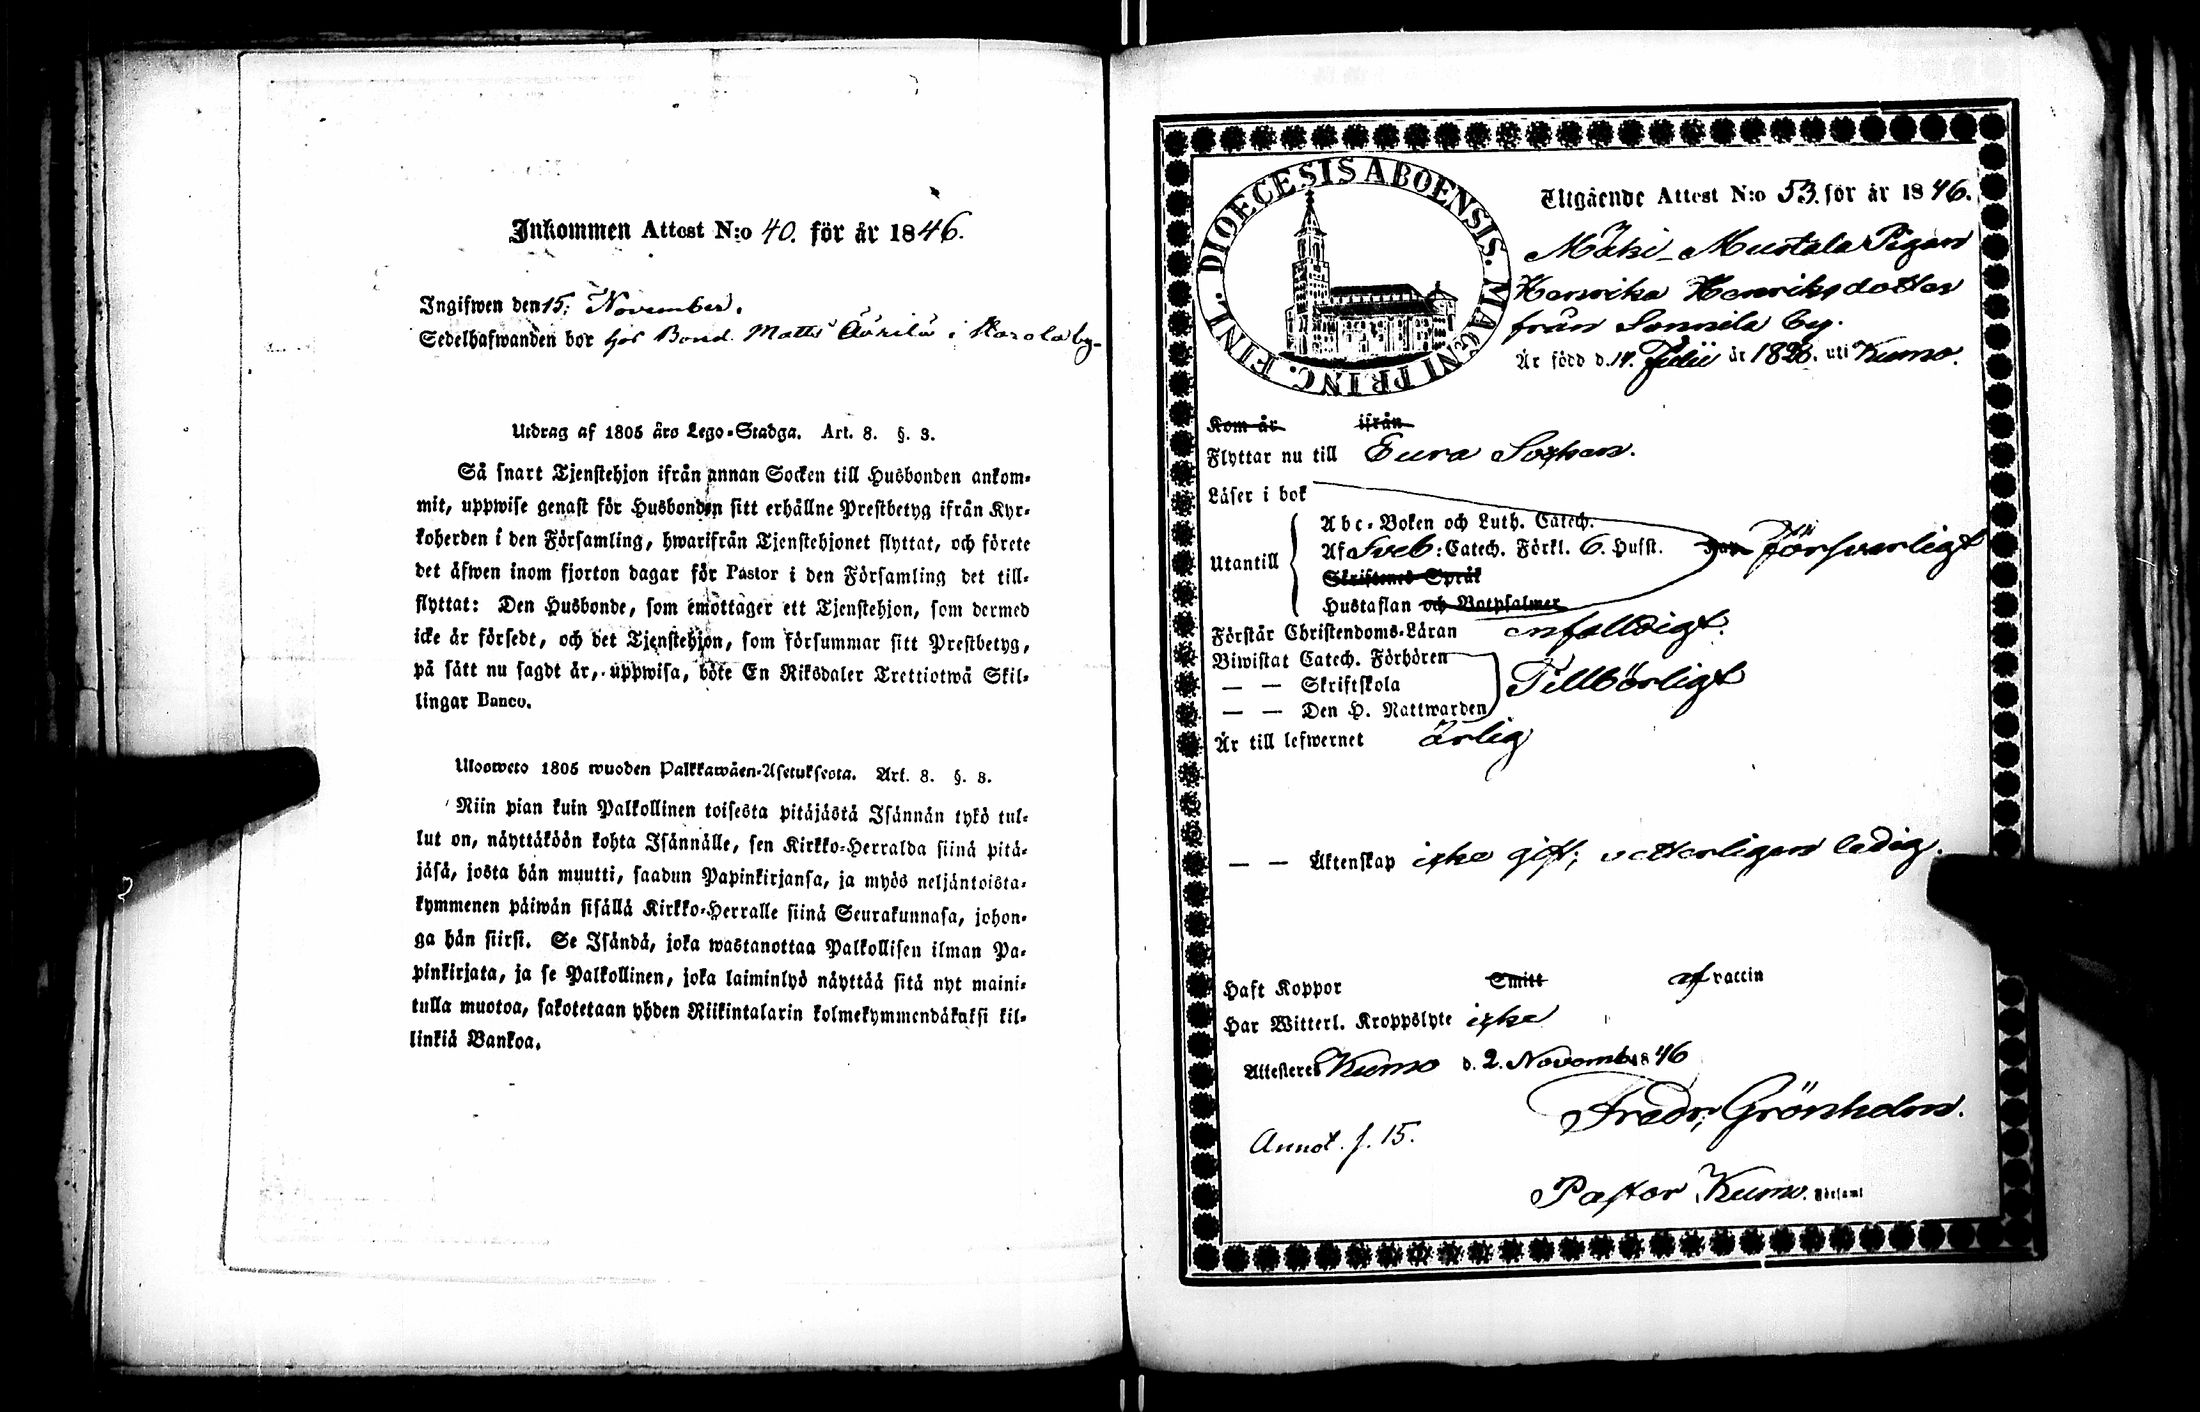 Inkommen Attest N:o 40. för år 1846.
Ingifwen den 15. November.
Sedelhafwanden bor hos Bond. Matts i by
Utdrag af 1805 års Lego-Stadga. Art. 8. §. 3.
Så snart Tjenstehjon ifrån annan Socken till Husbonden ankom-
mit, uppwise genast för Husbonden sitt erhållne Prestbetyg ifrån Kyr-
koherden i den Församling, hwarifrån Tjenstehjonet flyttat, och förete
det äfwen inom fjorton dagar för Pastor i den Församling det till-
flyttat: Den Husbonde, som emottager ett Tjenstehjon, som dermed
icke är försedt, och det Tjenstehjon, som försummar sitt Prestbetyg,
på sätt nu sagdt är, uppwisa, böte En Riksdaler Trettiotwå Skil-
lingar Banco.
Uloswето 1805 wuoden Palkkawäen-Asetuksesta. Art. 8. §. 3.
Niin pian kuin Palkollinen toisesta pitäjästä Isännän tykö tul-
lut on, näyttäköön kohta Isännälle, sen Kirkko-Herralda siinä pitä-
jäsä, josta hän muutti, saadun Papinkirjansa, ja myös neljäntoista-
kymmenen päiwän sisällä Kirkko-Herralle siinä Seurakunnasa, johon-
ga hän siirsi. Se Isändä, joka wastanottaa Palkollisen ilman Pa-
pinkirjata, ja se Palkollinen, joka laiminlyö näyttää sitä nyt maini-
tulla muotoa, sakotetaan yhden Riikintalarin kolmekymmendäkaksi kil-
linkiä Bankoa.
DIOECESIS ABOENSIS. MAGNI PRINC. FINL.
Utgående Attest N:o 53. för år 1846.
Mäki-Mustala Pigan
Henrika Henriksdotter
från Sonnila by.
Är född d. år uti Kumo.
Kom år ifrån
Flyttar nu till Eura Sochen.
Läser i bok
Utantill
Abc-Boken och Luth. Catech.
Af Sveb: Catech. Förkl. 6. Hufst. försvarligt
Skriftenes Språk
Hustaflan och Botpsalmer
Förstår Christendoms-Läran enfalldigt.
Biwistat Catech. Förhören
— — Skriftskola Tillbörligt
— — Den H. Nattwarden
Är till lefwernet ärlig
— — Äktenskap icke gift, vetterligen ledig.
Haft Koppor Smitt af vaccin
Har Witterl. Kroppslyte icke
Attesteres Kumo d. 2. Novemb. 1846
Fredr. Grönholm.
Annot. f. 15.
Pastor Kumo Församl